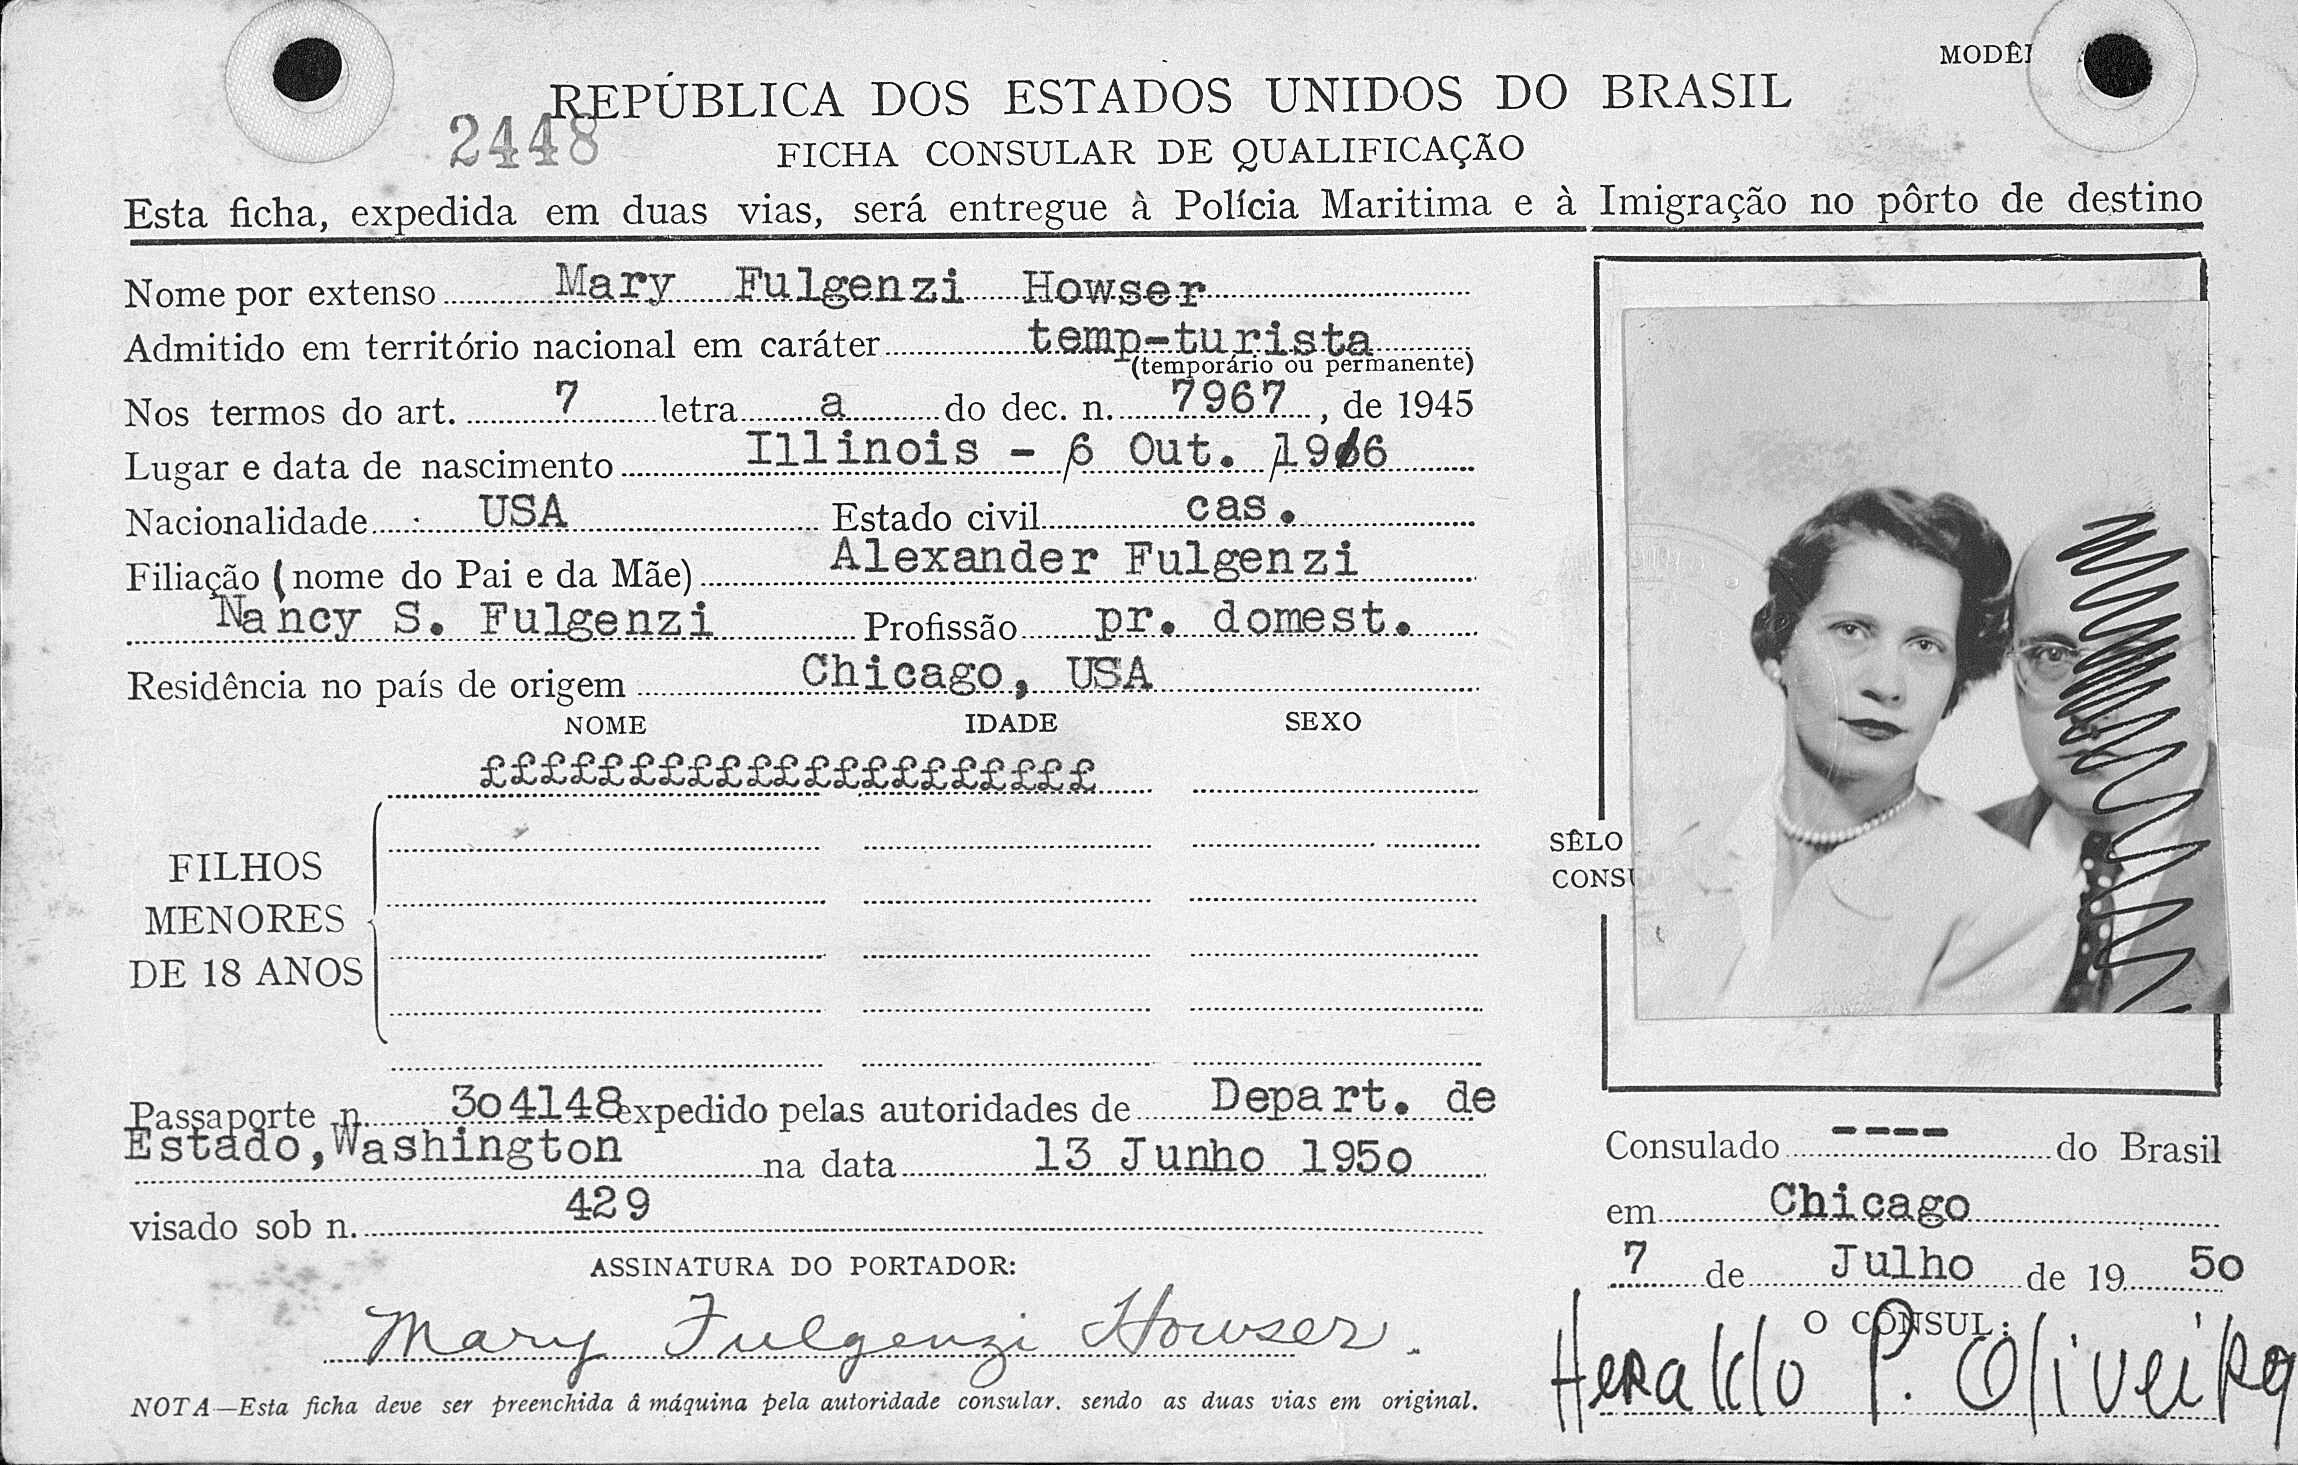 MODÊ
REPÚBLICA DOS ESTADOS UNIDOS DO BRASIL
2448
FICHA CONSULAR DE QUALIFICAÇÃO
Esta ficha, expedida em duas vias, será entregue à Polícia Maritima e à Imigração no pôrto de destino
Nome por extenso Mary Fulgenzi Howser
Admitido em território nacional em caráter temp-turista
(temporário ou permanente)
Nos termos do art. 7 letra a do dec. n. 7967, de 1945
Lugar e data de nascimento Illinois - 6 Out. 1916
Nacionalidade USA Estado civil cas.
Filiação (nome do Pai e da Mãe) Alexander Fulgenzi
Nancy S. Fulgenzi Profissão pr. domest.
Residência no país de origem Chicago, USA
NOME IDADE SEXO
£££££££££££££££££££££
FILHOS
MENORES
DE 18 ANOS
SÊLO
CONS
Passaporte n. 304148 expedido pelas autoridades de Depart. de
Estado, Washington na data 13 Junho 1950
visado sob n. 429
ASSINATURA DO PORTADOR:
Mary Fulgenzi Howser.
NOTA—Esta ficha deve ser preenchida â máquina pela autoridade consular. sendo as duas vias em original.
Consulado ---- do Brasil
em Chicago
7 de Julho de 1950
O CONSUL:
Heraldo P. Oliveira